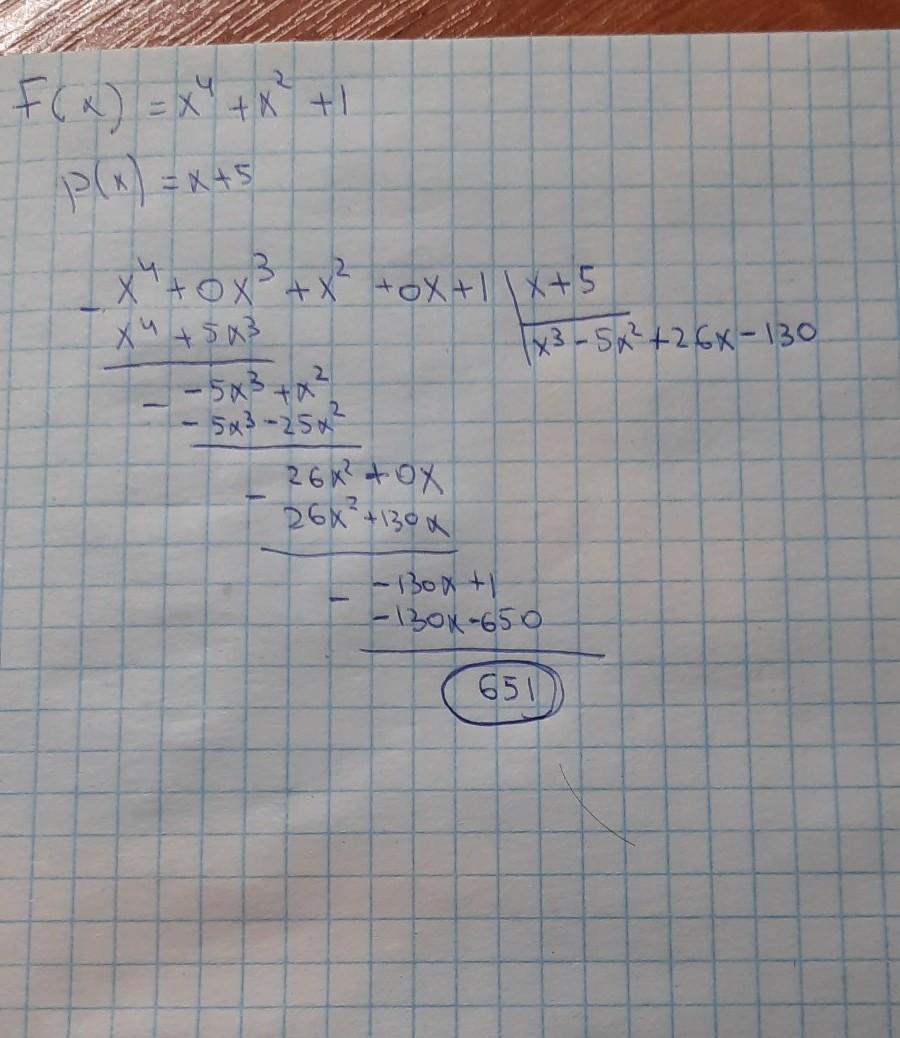 F(x) = x⁴ + x² + 1
p(x) = x + 5
- x⁴ + 0x³ + x² + 0x + 1 | x + 5
x⁴ + 5x³ | x³ - 5x² + 26x - 130
- - 5x³ + x²
- 5x³ - 25x²
- 26x² + 0x
26x² + 130x
- - 130x + 1
- 130x - 650
651